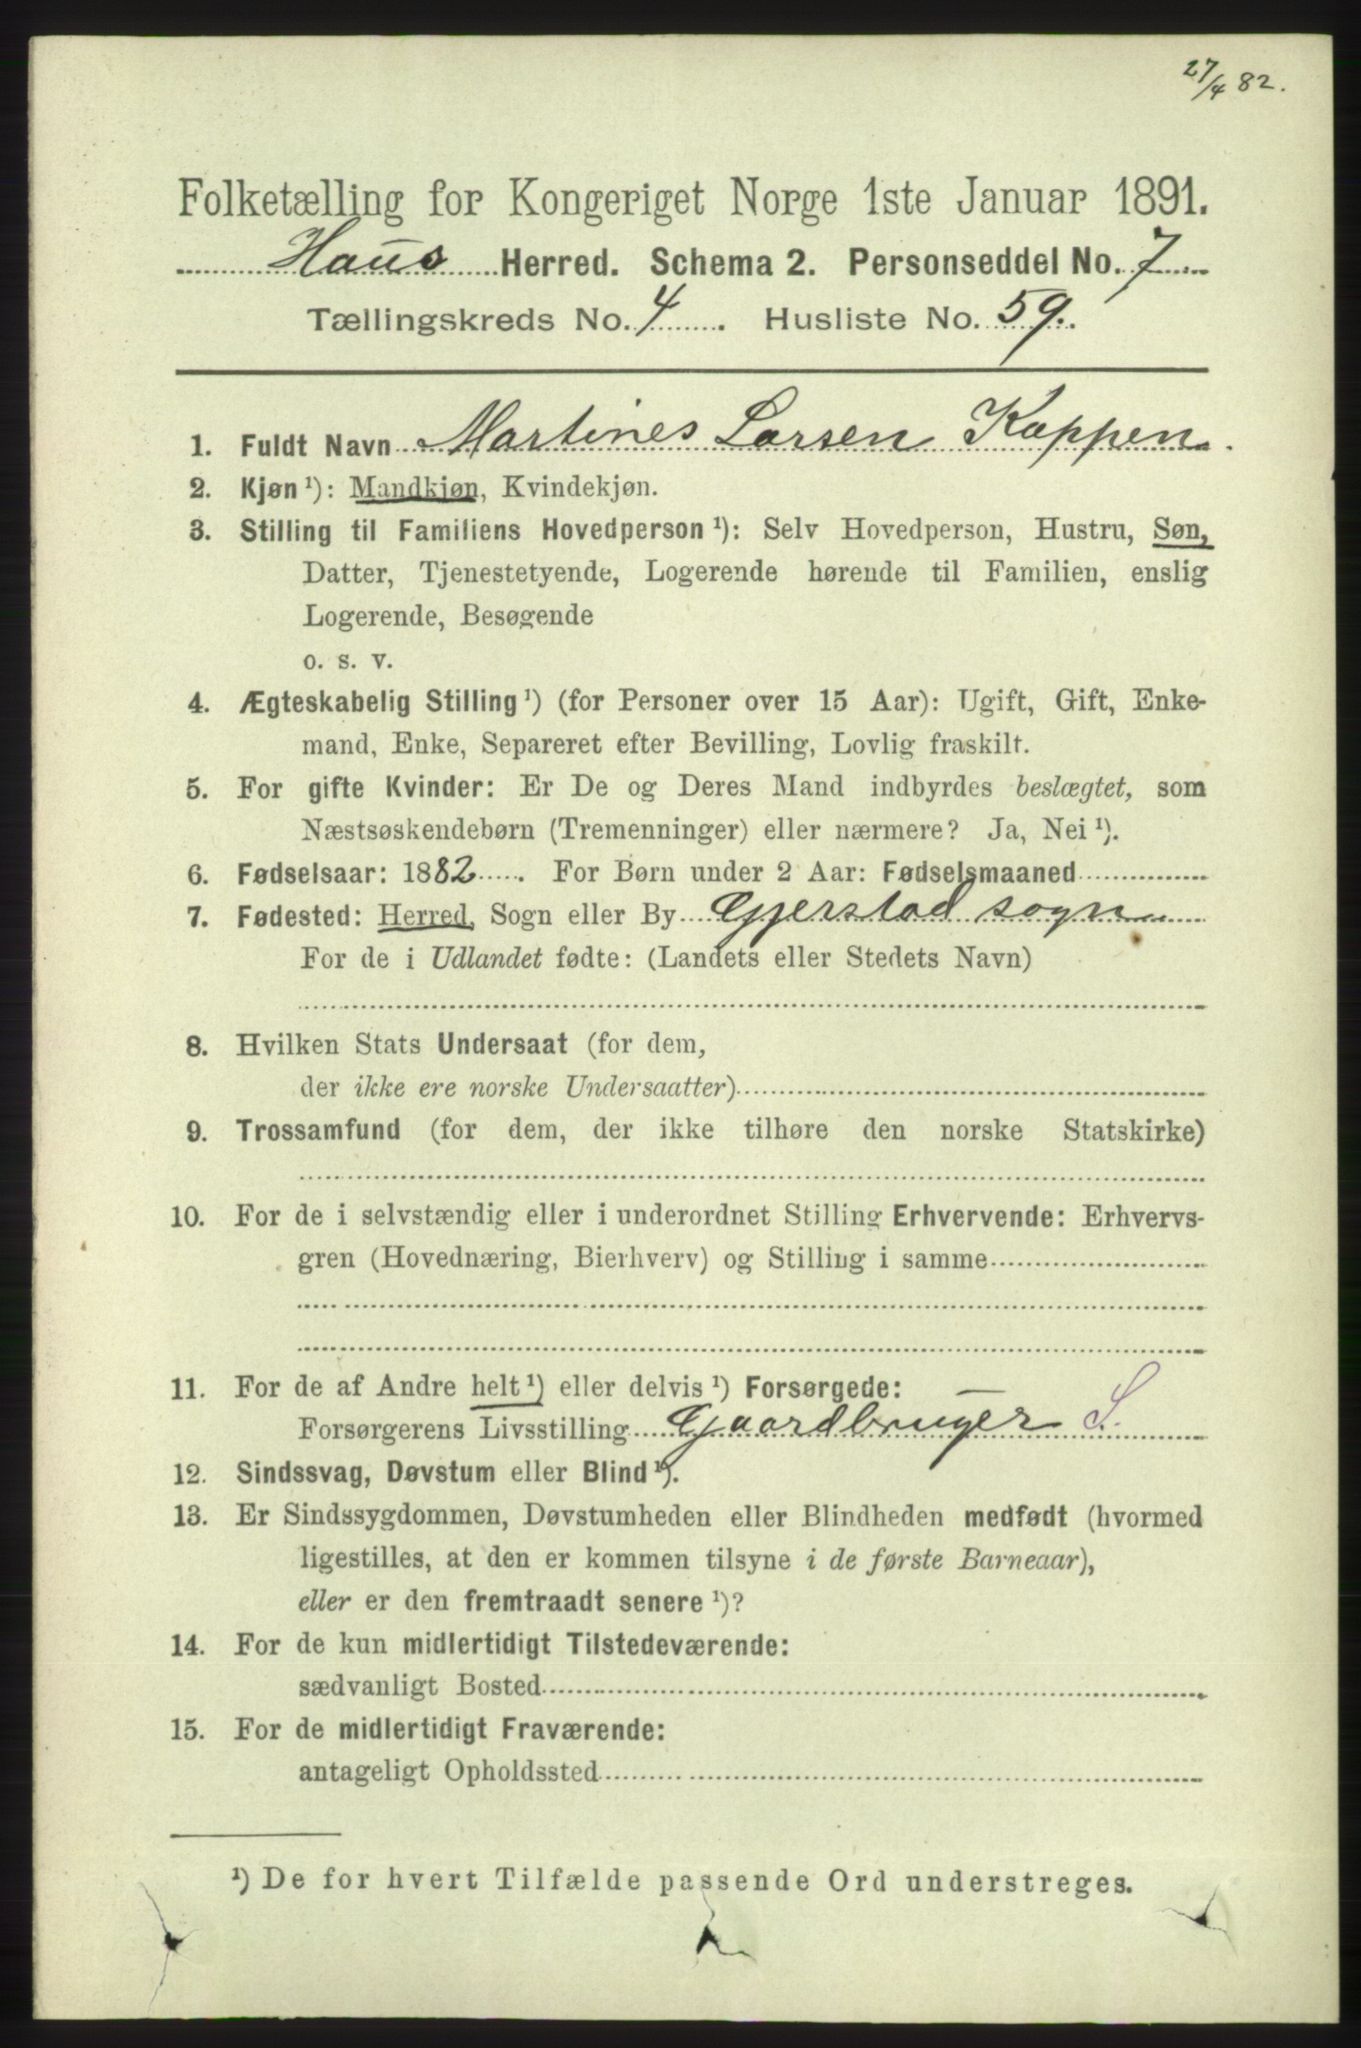 27/4 82.
Folketælling for Kongeriget Norge 1ste Januar 1891.
Haus Herred. Schema 2. Personseddel No. 7
Tællingskreds No. 4. Husliste No. 59.
1. Fuldt Navn Martines Larsen Kappen.
2. Kjøn ¹): Mandkjøn, Kvindekjøn.
3. Stilling til Familiens Hovedperson ¹): Selv Hovedperson, Hustru, Søn,
Datter, Tjenestetyende, Logerende hørende til Familien, enslig
Logerende, Besøgende
o. s. v.
4. Ægteskabelig Stilling ¹) (for Personer over 15 Aar): Ugift, Gift, Enke-
mand, Enke, Separeret efter Bevilling, Lovlig fraskilt.
5. For gifte Kvinder: Er De og Deres Mand indbyrdes beslægtet, som
Næstsøskendebørn (Tremenninger) eller nærmere? Ja, Nei ¹).
6. Fødselsaar: 1882. For Børn under 2 Aar: Fødselsmaaned
7. Fødested: Herred, Sogn eller By Gjerstad sogn
For de i Udlandet fødte: (Landets eller Stedets Navn)
8. Hvilken Stats Undersaat (for dem,
der ikke ere norske Undersaatter)
9. Trossamfund (for dem, der ikke tilhøre den norske Statskirke)
10. For de i selvstændig eller i underordnet Stilling Erhvervende: Erhvervs-
gren (Hovednæring, Bierhverv) og Stilling i samme
11. For de af Andre helt ¹) eller delvis ¹) Forsørgede:
Forsørgerens Livsstilling Gaardbruger S.
12. Sindssvag, Døvstum eller Blind ¹).
13. Er Sindssygdommen, Døvstumheden eller Blindheden medfødt (hvormed
ligestilles, at den er kommen tilsyne i de første Barneaar),
eller er den fremtraadt senere ¹)?
14. For de kun midlertidigt Tilstedeværende:
sædvanligt Bosted
15. For de midlertidigt Fraværende:
antageligt Opholdssted
¹) De for hvert Tilfælde passende Ord understreges.